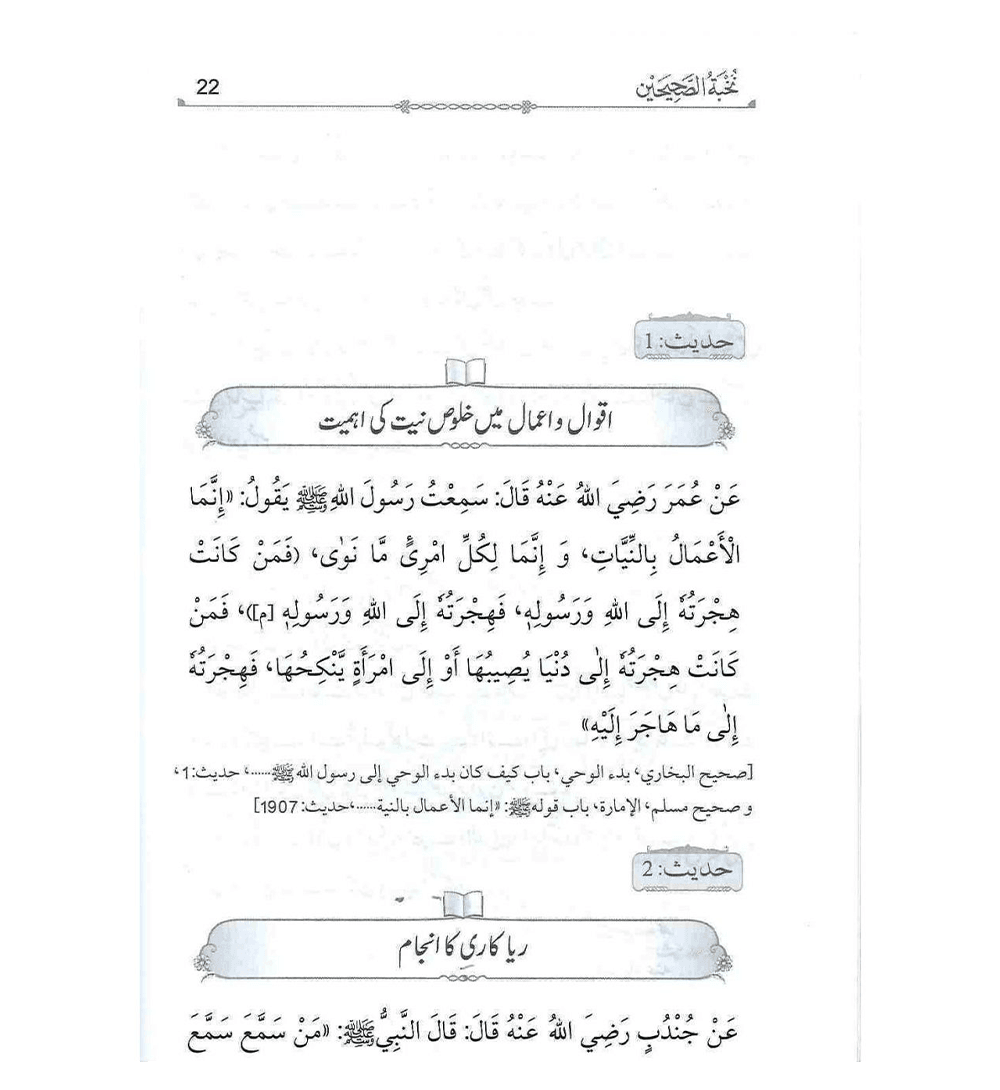 نُخْبَةُ الصَّحِيحَيْن 22
حدیث: 1
اقوال و اعمال میں خلوص نیت کی اہمیت
عَنْ عُمَرَ رَضِيَ اللهُ عَنْهُ قَالَ: سَمِعْتُ رَسُولَ اللهِ ﷺ يَقُولُ: «إِنَّمَا
الْأَعْمَالُ بِالنِّيَّاتِ، وَ إِنَّمَا لِكُلِّ امْرِئٍ مَّا نَوٰى، (فَمَنْ كَانَتْ
هِجْرَتُهٗ إِلَى اللهِ وَرَسُولِهٖ، فَهِجْرَتُهٗ إِلَى اللهِ وَرَسُولِهٖ [م])، فَمَنْ
كَانَتْ هِجْرَتُهٗ إِلٰى دُنْيَا يُصِيبُهَا أَوْ إِلَى امْرَأَةٍ يَّنْكِحُهَا، فَهِجْرَتُهٗ
إِلٰى مَا هَاجَرَ إِلَيْهِ»
[صحيح البخاري، بدء الوحي، باب كيف كان بدء الوحي إلى رسول الله ﷺ......، حديث: 1،
و صحيح مسلم، الإمارة، باب قوله ﷺ: «إنما الأعمال بالنية......، حديث: 1907]
حدیث: 2
ریا کاری کا انجام
عَنْ جُنْدُبٍ رَضِيَ اللهُ عَنْهُ قَالَ: قَالَ النَّبِيُّ ﷺ: «مَنْ سَمَّعَ سَمَّعَ